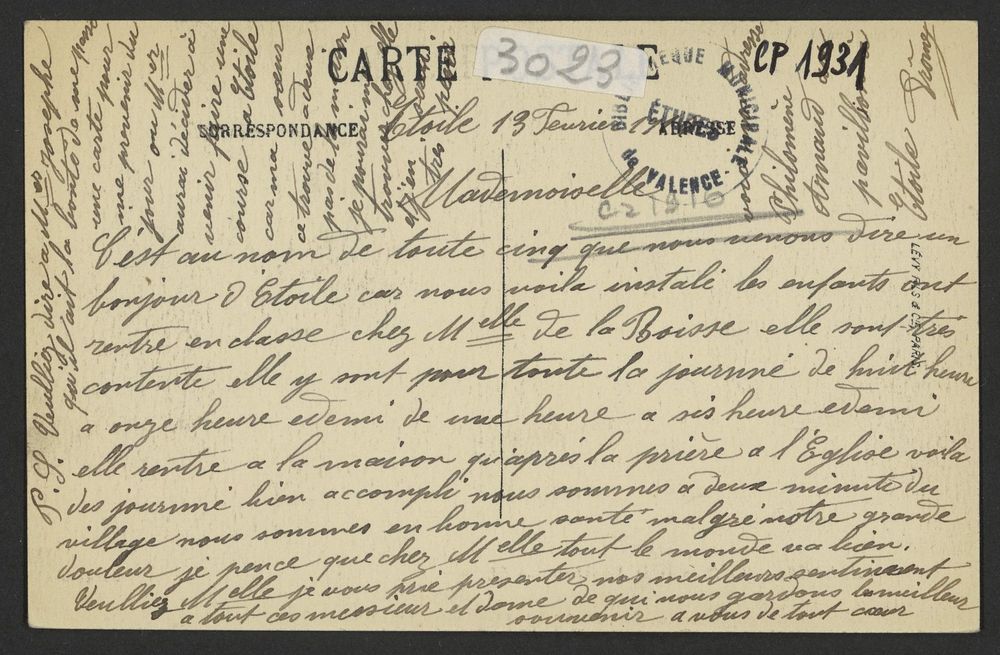 CARTE
3023
CP 1931
BIBLIOTHEQUE MUNICIPALE de VALENCE
ETUDES
CORRESPONDANCE
ADRESSE
Etoile 13 Fevrier
Mademoiselle
C2 1910
C'est au nom de toute cinq que nous venons dire un
bonjour d'Etoile car nous voila instalé les enfants ont
rentré en classe chez Melle de la Boisse elle sont très
contente elle y sont pour toute la journné de huit heure
a onze heure edemi de une heure a sis heure edemi
elle rentre a la maison qu'après la prière a l'Eglise voila
des journné bien accompli nous sommes a deux minute du
village nous sommes en bonne santé malgré notre grande
douleur je pence que chez Melle tout le monde va bien.
Veulliez Melle je vous prie presenter nos meilleurs sentiment
a tout ces messieur et dame de qui nous gardons le meilleur
souvenir a vous de tout cœur
LÉVY FILS & Cie PARIS
P.S. Veulliez dire a Mer Josephe
qu'il ait la bonté de me passé
une carte pour
me prévenir du
jour ou Mer
aurai décider a
venir faire une
course a Etoile
car ma sœur
ce trouve a deux
pas de la maison
je pourrai me
trouve chez elle
voici adresse
Philomène
Armand
pavillon
Etoile
Drome